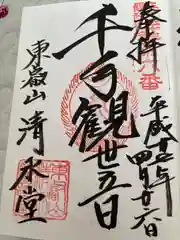 奉拝
平成十五年
四月廿六日
千手観世音
東叡山 清水堂